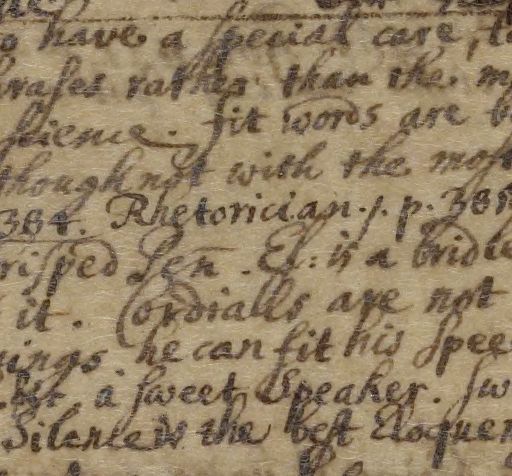 have a special care, to
rases rather than the
science. fit words are
though not with the most
384. Rhetorician. s. p. 385
sped Sen. El: is a bridle
it. Cordialls are not
he can fit his spee
a sweet Speaker. sw
Silence is the best Eloquen